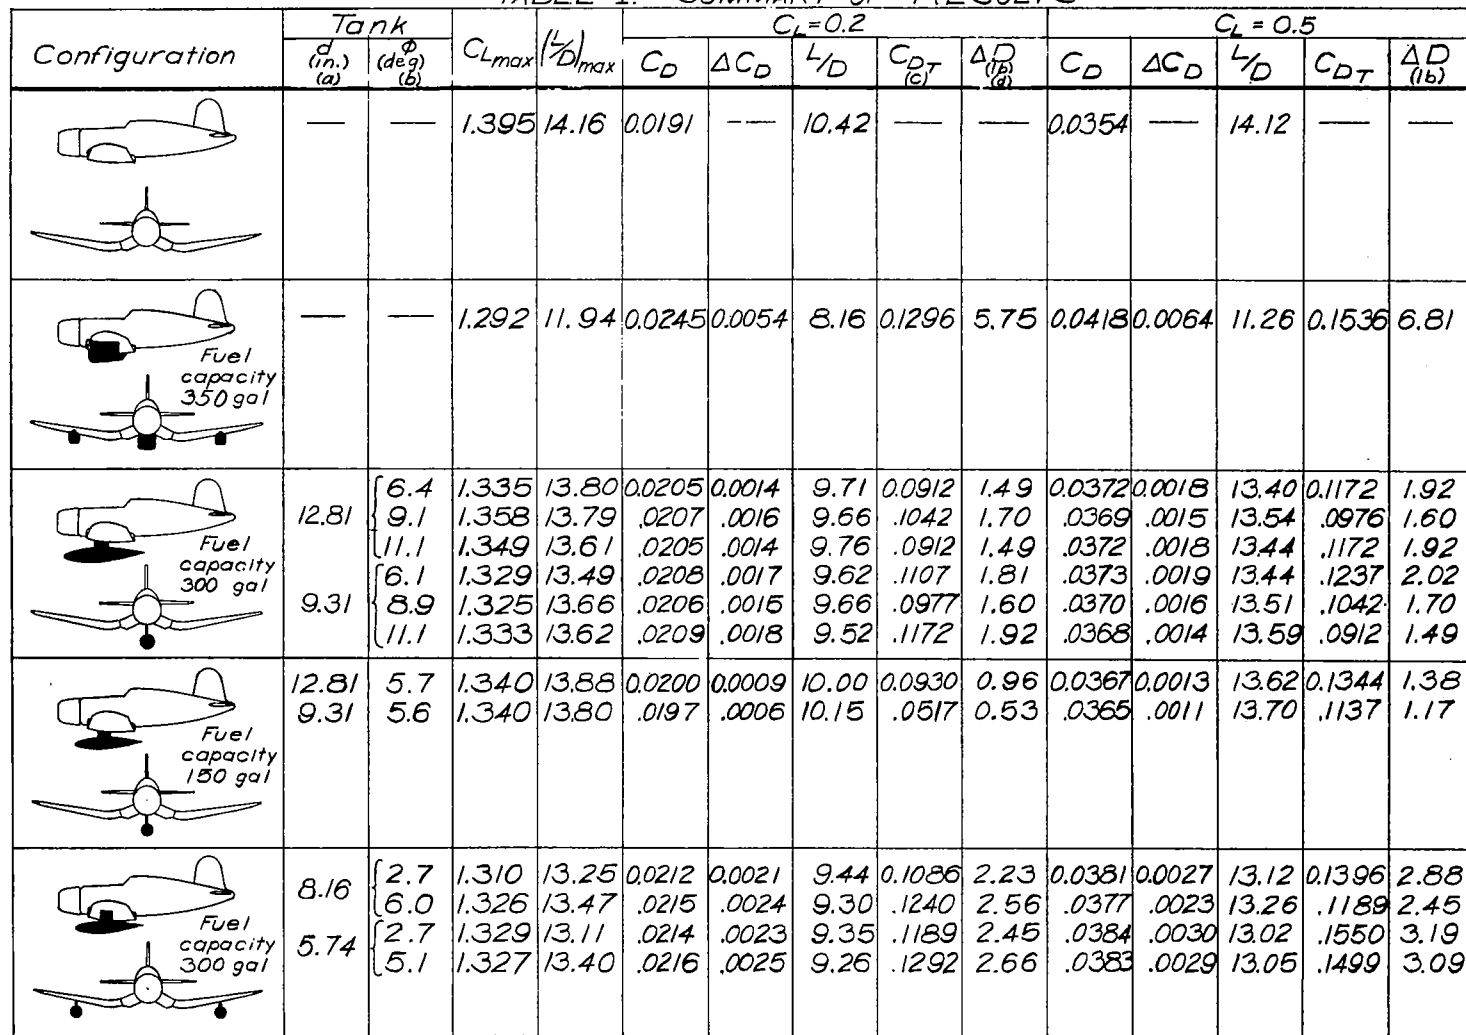 TABLE I.- SUMMARY OF RESULTS
Configuration | Tank | CLmax | (L/D)max | CL=0.2 | CL = 0.5
d (in.) (a) | φ (deg) (b) | CD | ΔCD | L/D | CDT (c) | ΔD (lb) (d) | CD | ΔCD | L/D | CDT | ΔD (lb)
— — 1.395 14.16 0.0191 — 10.42 — — 0.0354 — 14.12 — —
— — 1.292 11.94 0.0245 0.0054 8.16 0.1296 5.75 0.0418 0.0064 11.26 0.1536 6.81
Fuel
capacity
350 gal
12.81
6.4 1.335 13.80 0.0205 0.0014 9.71 0.0912 1.49 0.0372 0.0018 13.40 0.1172 1.92
9.1 1.358 13.79 .0207 .0016 9.66 .1042 1.70 .0369 .0015 13.54 .0976 1.60
11.1 1.349 13.61 .0205 .0014 9.76 .0912 1.49 .0372 .0018 13.44 .1172 1.92
9.31
6.1 1.329 13.49 .0208 .0017 9.62 .1107 1.81 .0373 .0019 13.44 .1237 2.02
8.9 1.325 13.66 .0206 .0015 9.66 .0977 1.60 .0370 .0016 13.51 .1042 1.70
11.1 1.333 13.62 .0209 .0018 9.52 .1172 1.92 .0368 .0014 13.59 .0912 1.49
Fuel
capacity
300 gal
12.81 5.7 1.340 13.88 0.0200 0.0009 10.00 0.0930 0.96 0.0367 0.0013 13.62 0.1344 1.38
9.31 5.6 1.340 13.80 .0197 .0006 10.15 .0517 0.53 .0365 .0011 13.70 .1137 1.17
Fuel
capacity
150 gal
8.16
2.7 1.310 13.25 0.0212 0.0021 9.44 0.1086 2.23 0.0381 0.0027 13.12 0.1396 2.88
6.0 1.326 13.47 .0215 .0024 9.30 .1240 2.56 .0377 .0023 13.26 .1189 2.45
5.74
2.7 1.329 13.11 .0214 .0023 9.35 .1189 2.45 .0384 .0030 13.02 .1550 3.19
5.1 1.327 13.40 .0216 .0025 9.26 .1292 2.66 .0383 .0029 13.05 .1499 3.09
Fuel
capacity
300 gal